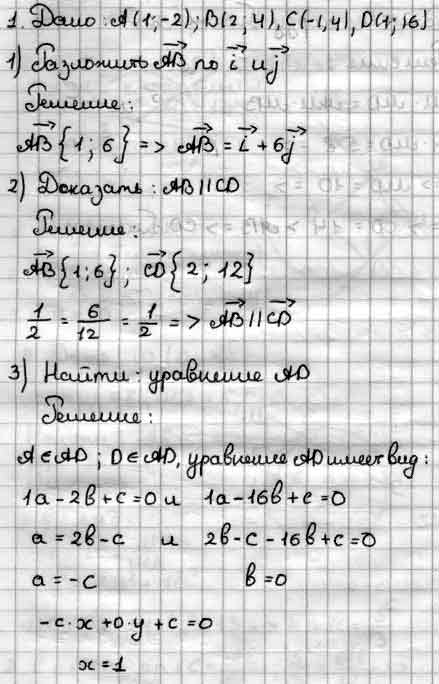 1. Дано: A(1;-2); B(2;4), C(-1,4), D(1;16)
1) Разложить AB по i и j
Решение:
AB{1;6} => AB = i + 6j
2) Доказать: AB||CD
Решение:
AB{1;6}; CD{2;12}
1/2 = 6/12 = 1/2 => AB||CD
3) Найти: уравнение AD
Решение:
A∈AD; D∈AD, уравнение AD имеет вид:
1a-2b+c=0 и 1a-16b+c=0
a=2b-c и 2b-c-16b+c=0
a=-c b=0
-c·x+0·y+c=0
x=1